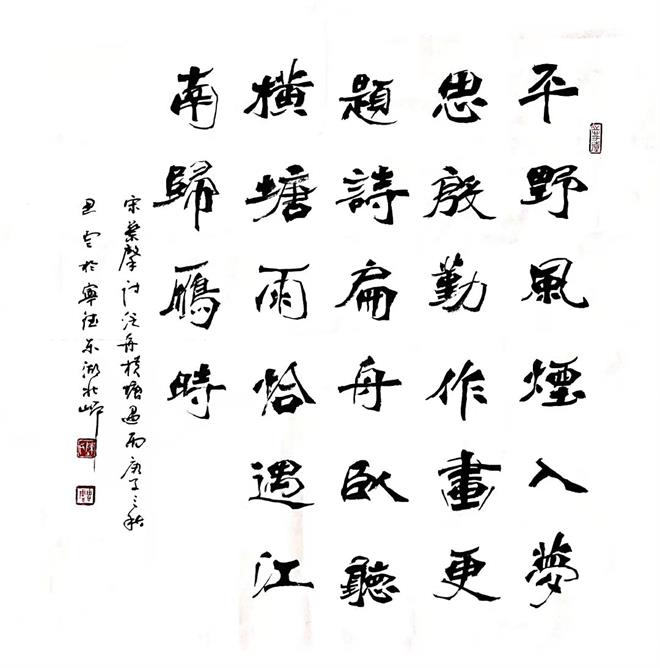 平野風煙入夢
思殷勤作畫更
題詩扁舟臥聽
橫塘雨恰遇江
南歸鴈時
宋葉詩泛舟橫塘遇雨庚子之秋
於寧德東湖北岸